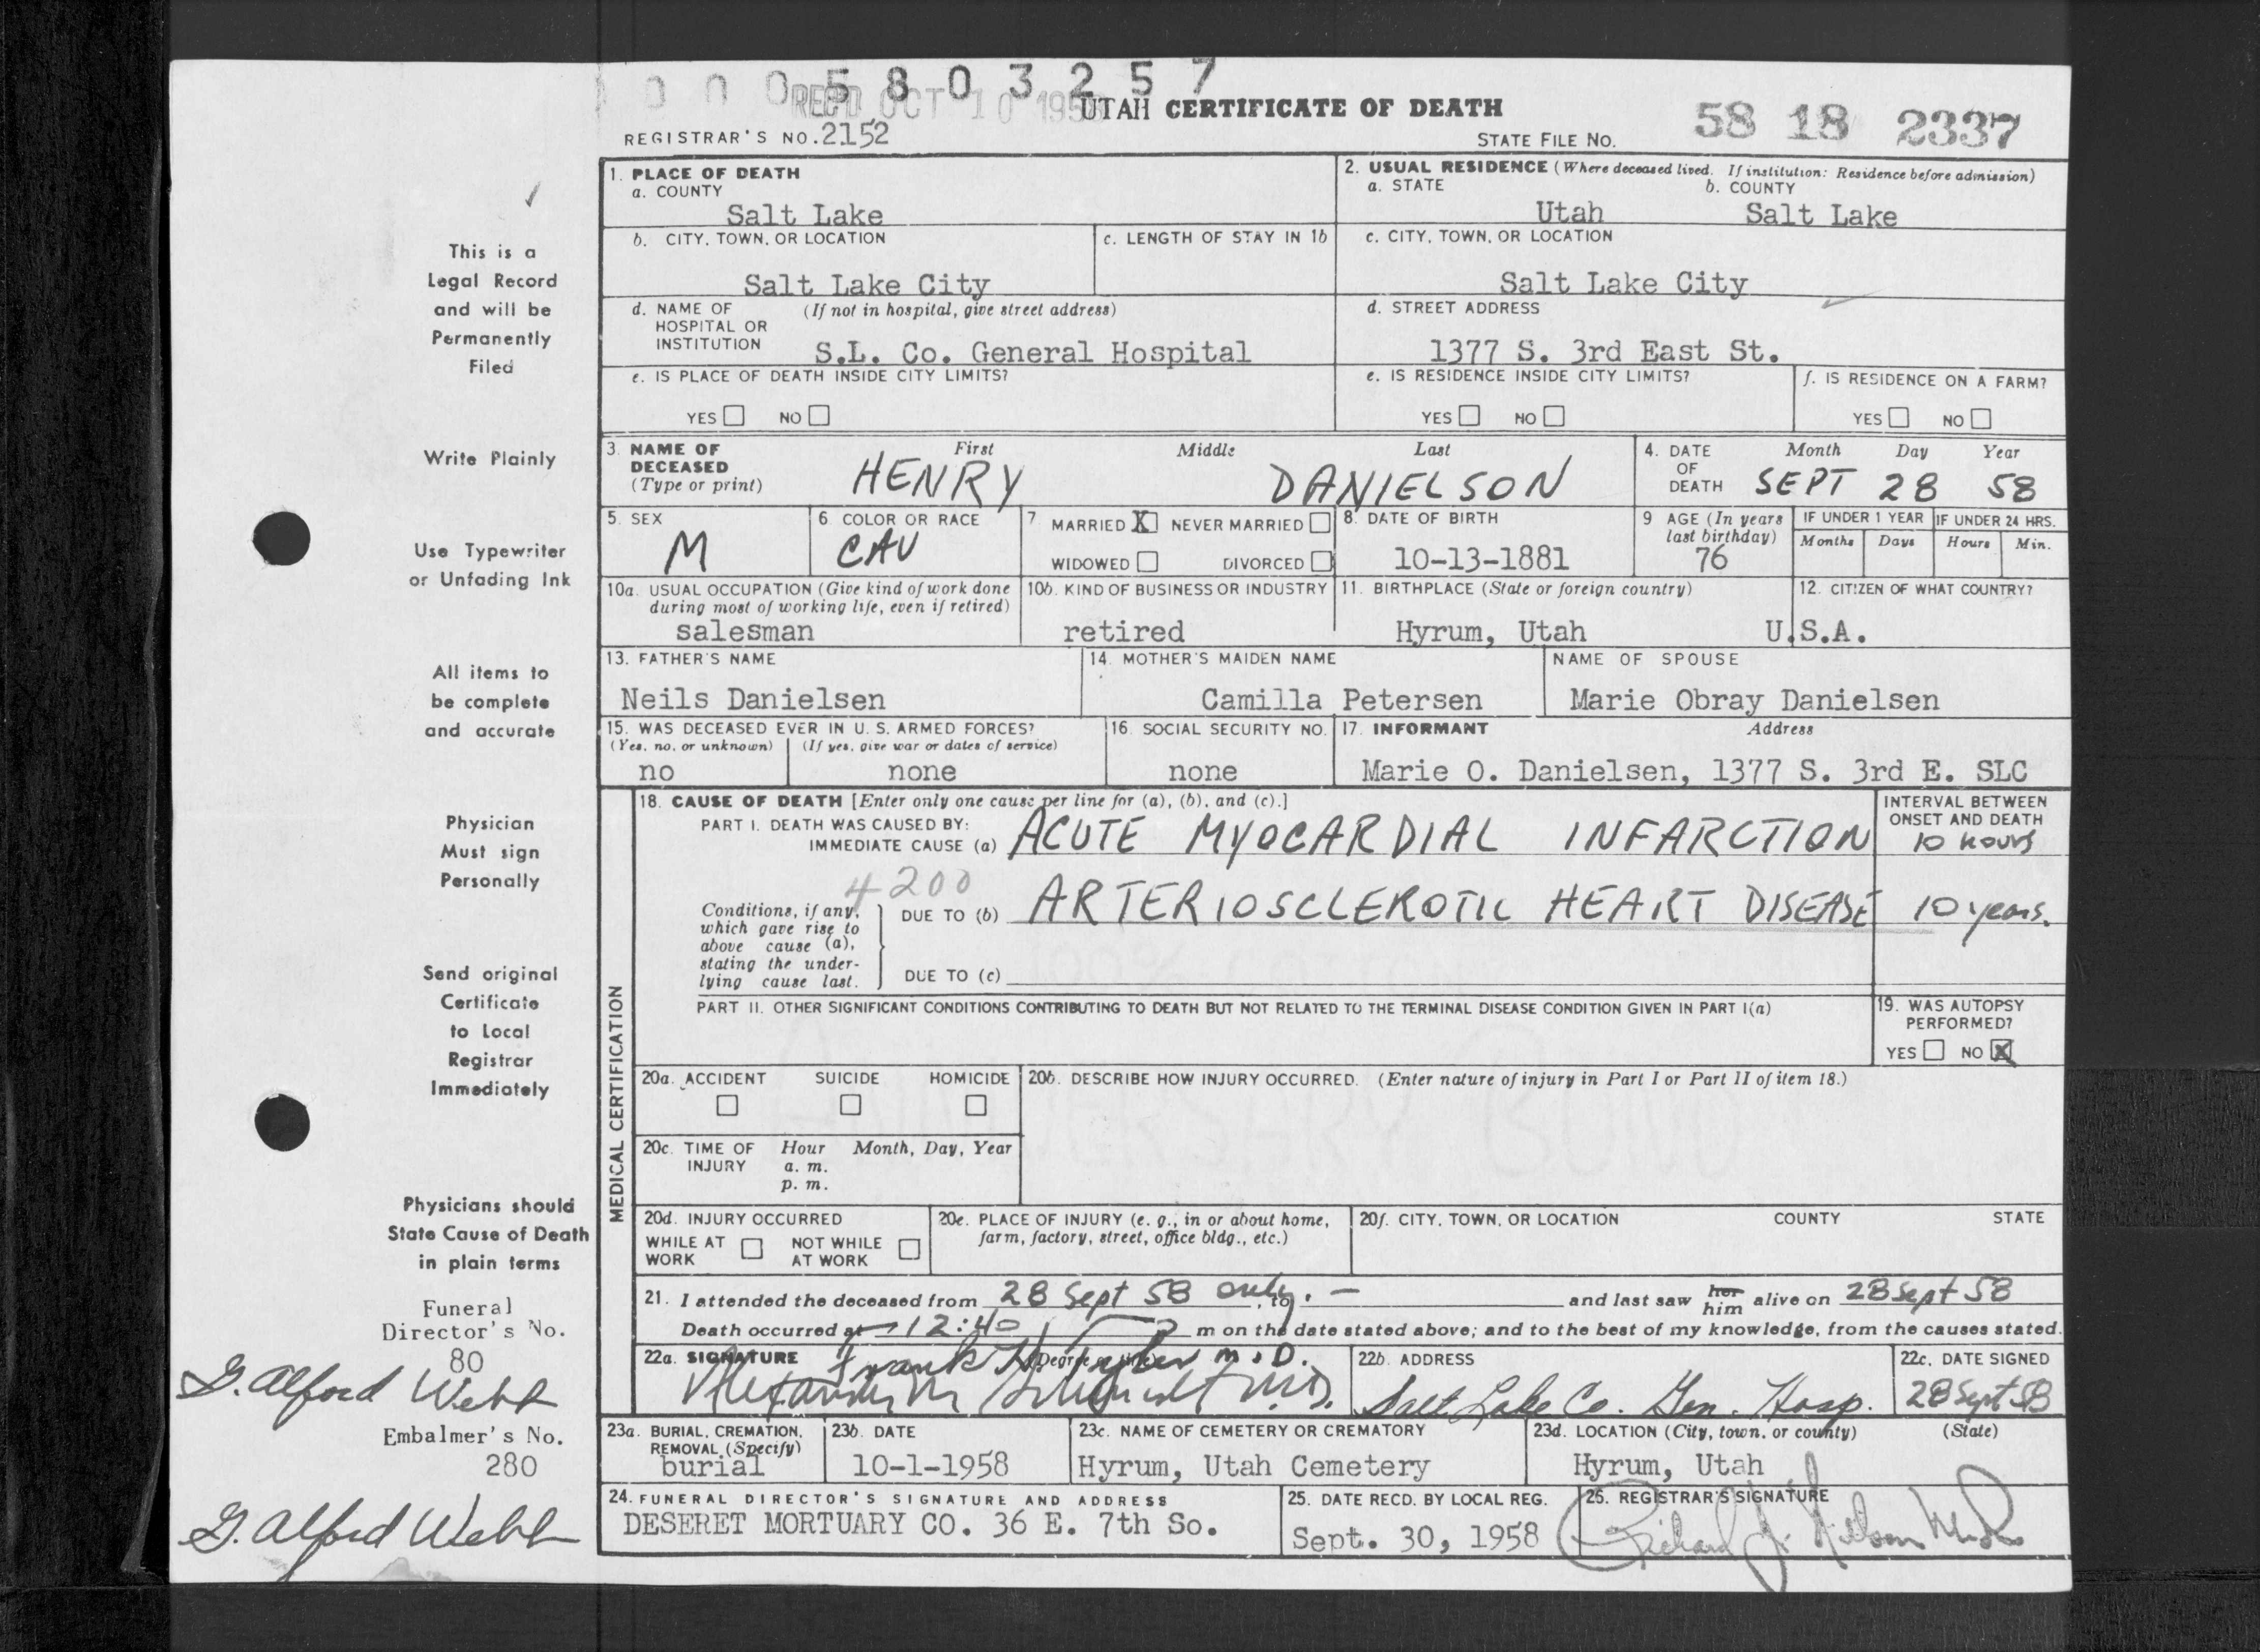 0 0 0 5 8 0 3 2 5 7
REC'D OCT 10 1958
UTAH CERTIFICATE OF DEATH
58 18 2337
REGISTRAR'S NO. 2152
STATE FILE NO.
This is a
Legal Record
and will be
Permanently
Filed
Write Plainly
Use Typewriter
or Unfading Ink
All items to
be complete
and accurate
Physician
Must sign
Personally
Send original
Certificate
to Local
Registrar
Immediately
Physicians should
State Cause of Death
in plain terms
Funeral
Director's No.
80
G. Alford Webb
Embalmer's No.
280
G. Alford Webb
1. PLACE OF DEATH
a. COUNTY
Salt Lake
2. USUAL RESIDENCE (Where deceased lived. If institution: Residence before admission)
a. STATE b. COUNTY
Utah Salt Lake
b. CITY, TOWN, OR LOCATION
Salt Lake City
c. LENGTH OF STAY IN 1b
c. CITY, TOWN, OR LOCATION
Salt Lake City
d. NAME OF (If not in hospital, give street address)
HOSPITAL OR
INSTITUTION S.L. Co. General Hospital
d. STREET ADDRESS
1377 S. 3rd East St.
e. IS PLACE OF DEATH INSIDE CITY LIMITS?
YES NO
e. IS RESIDENCE INSIDE CITY LIMITS?
YES NO
f. IS RESIDENCE ON A FARM?
YES NO
3. NAME OF First Middle Last
DECEASED
(Type or print) HENRY DANIELSON
4. DATE Month Day Year
OF
DEATH SEPT 28 58
5. SEX
M
6 COLOR OR RACE
CAU
7 MARRIED X NEVER MARRIED
WIDOWED DIVORCED
8. DATE OF BIRTH
10-13-1881
9 AGE (In years
last birthday)
76
IF UNDER 1 YEAR
Months Days
IF UNDER 24 HRS.
Hours Min.
10a. USUAL OCCUPATION (Give kind of work done
during most of working life, even if retired)
salesman
10b. KIND OF BUSINESS OR INDUSTRY
retired
11. BIRTHPLACE (State or foreign country)
Hyrum, Utah
12. CITIZEN OF WHAT COUNTRY?
U.S.A.
13. FATHER'S NAME
Neils Danielsen
14. MOTHER'S MAIDEN NAME
Camilla Petersen
NAME OF SPOUSE
Marie Obray Danielsen
15. WAS DECEASED EVER IN U. S. ARMED FORCES?
(Yes, no, or unknown) (If yes, give war or dates of service)
no none
16. SOCIAL SECURITY NO.
none
17. INFORMANT Address
Marie O. Danielsen, 1377 S. 3rd E. SLC
MEDICAL CERTIFICATION
18. CAUSE OF DEATH [Enter only one cause per line for (a), (b), and (c).]
PART I. DEATH WAS CAUSED BY:
IMMEDIATE CAUSE (a) ACUTE MYOCARDIAL INFARCTION
INTERVAL BETWEEN
ONSET AND DEATH
10 hours
4200
Conditions, if any,
which gave rise to
above cause (a),
stating the under-
lying cause last.
DUE TO (b) ARTERIOSCLEROTIC HEART DISEASE 10 years.
DUE TO (c)
PART II. OTHER SIGNIFICANT CONDITIONS CONTRIBUTING TO DEATH BUT NOT RELATED TO THE TERMINAL DISEASE CONDITION GIVEN IN PART I(a)
19. WAS AUTOPSY
PERFORMED?
YES NO X
20a. ACCIDENT SUICIDE HOMICIDE
20b. DESCRIBE HOW INJURY OCCURRED. (Enter nature of injury in Part I or Part II of item 18.)
20c. TIME OF Hour Month, Day, Year
INJURY a. m.
p. m.
20d. INJURY OCCURRED
WHILE AT NOT WHILE
WORK AT WORK
20e. PLACE OF INJURY (e. g., in or about home,
farm, factory, street, office bldg., etc.)
20f. CITY, TOWN, OR LOCATION COUNTY STATE
21. I attended the deceased from 28 Sept 58 only. to — and last saw her him alive on 28 Sept 58
Death occurred at 12:40 P m on the date stated above; and to the best of my knowledge, from the causes stated.
22a. SIGNATURE (Degree or title)
Frank H. Tyler M.D.
M.D.
22b. ADDRESS
Salt Lake Co. Gen. Hosp.
22c. DATE SIGNED
28 Sept 58
23a. BURIAL, CREMATION,
REMOVAL (Specify)
burial
23b. DATE
10-1-1958
23c. NAME OF CEMETERY OR CREMATORY
Hyrum, Utah Cemetery
23d. LOCATION (City, town, or county) (State)
Hyrum, Utah
24. FUNERAL DIRECTOR'S SIGNATURE AND ADDRESS
DESERET MORTUARY CO. 36 E. 7th So.
25. DATE RECD. BY LOCAL REG.
Sept. 30, 1958
26. REGISTRAR'S SIGNATURE
Richard